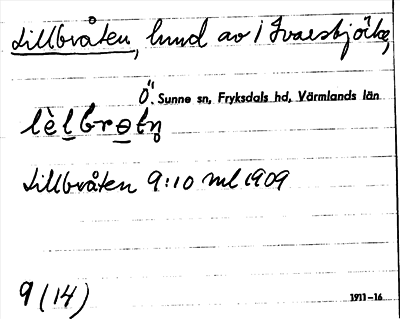 Lillbråten, hund av 1 Ivarsbjörke,
Ö. Sunne sn, Fryksdals hd, Värmlands län
lèlbrotn̥
Lillbråten 9:10 ml 1909
9 (14)
1911–16